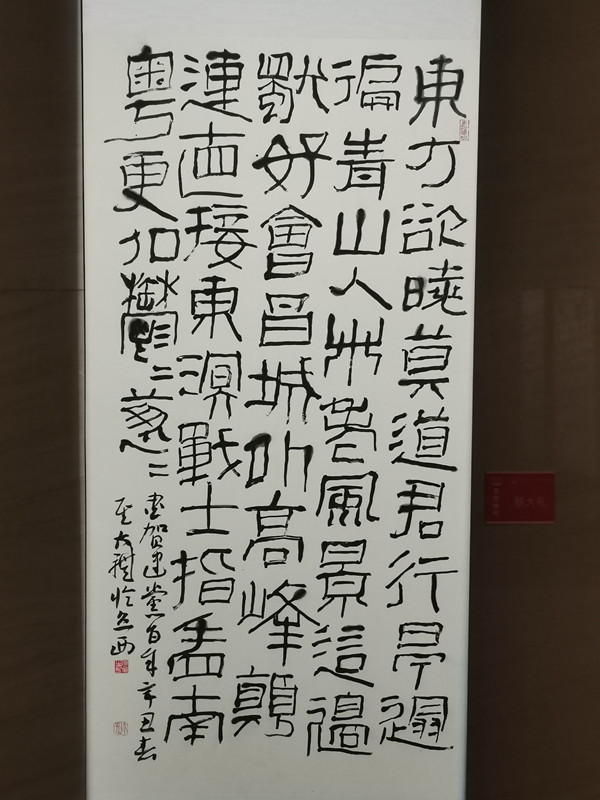 東方欲曉莫道君行早遢
徧青山人未老風景這邊
獨好會昌城外高峰顛
連直接東溟戰士指看南
粵更加鬱〻蔥〻
書賀建黨百年辛丑春
大禮於京西